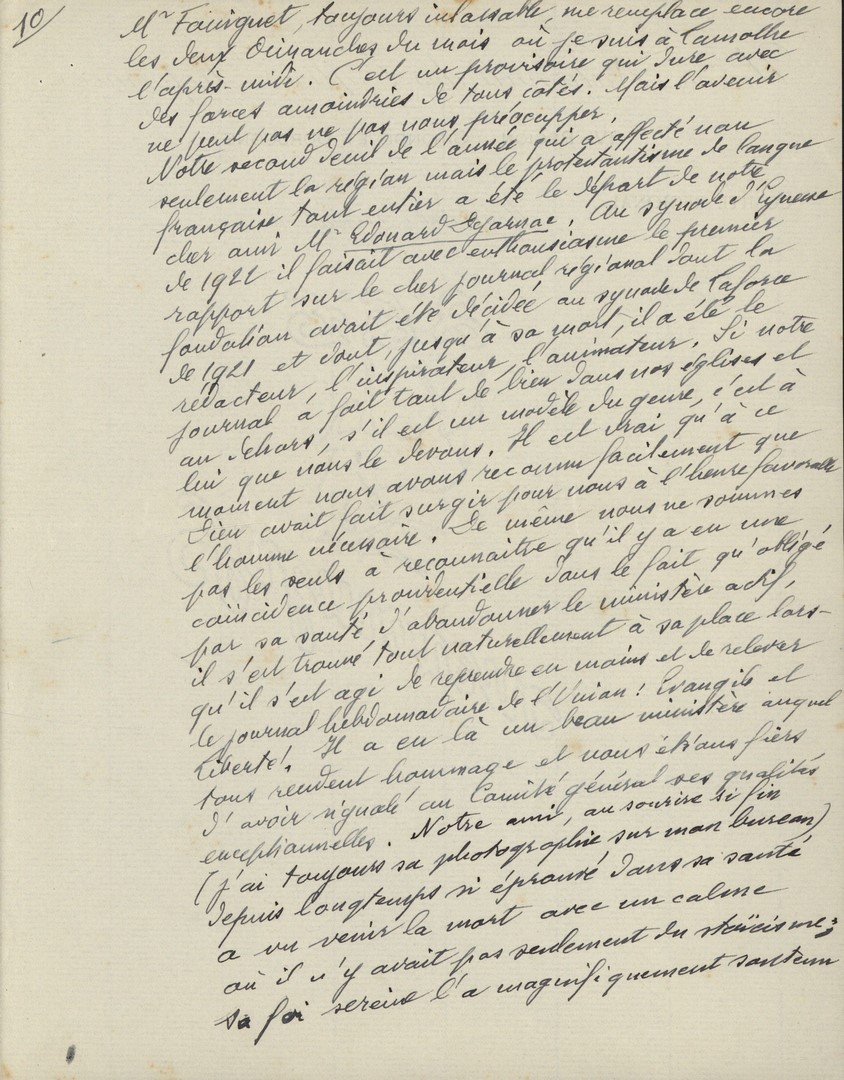 10
Mr Fauriguet, toujours inlassable, me remplace encore
les deux Dimanches du mois où je suis à Lamothe
l'après-midi. C'est un provisoire qui dure avec
des forces amoindries de tous côtés. Mais l'avenir
ne peut pas ne pas nous préoccuper.
Notre second deuil de l'année qui a affecté non
seulement la région mais le protestantisme de langue
française tout entier a été le départ de notre
cher ami Mr Edouard Dejarnac. Au synode d'Eynesse
de 1922 il faisait avec enthousiasme le premier
rapport sur le cher journal régional dont la
fondation avait été décidée au synode de Laforce
de 1921 et dont, jusqu'à sa mort, il a été le
rédacteur, l'inspirateur, l'animateur. Si notre
journal a fait tant de bien dans nos églises et
au dehors, s'il est un modèle du genre, c'est à
lui que nous le devons. Il est vrai qu'à ce
moment nous avons reconnu facilement que
Dieu avait fait surgir pour nous à l'heure favorable
l'homme nécessaire. De même nous ne sommes
pas les seuls à reconnaitre qu'il y a eu une
coïncidence providentielle dans le fait qu'obligé
par sa santé d'abandonner le ministère actif,
il s'est trouvé tout naturellement à sa place lors-
qu'il s'est agi de reprendre en mains et de relever
le journal hebdomadaire de l'Union: Evangile et
Liberté. Il a eu là un beau ministère auquel
tous rendent hommage et nous étions fiers
d'avoir signalé au Comité général ses qualités
exceptionnelles. Notre ami, au sourire si fin
(j'ai toujours sa photographie sur mon bureau)
depuis longtemps si éprouvé dans sa santé
a vu venir la mort avec un calme
où il n'y avait pas seulement du stoïcisme;
sa foi sereine l'a magnifiquement soutenu